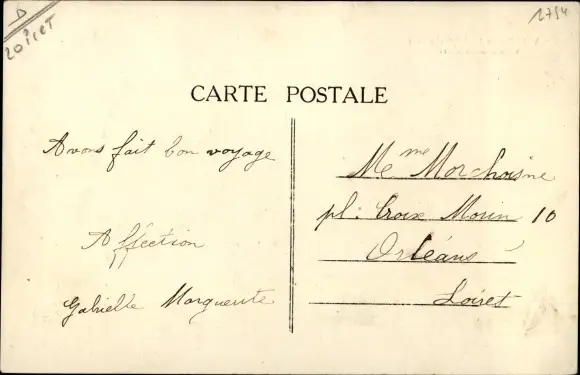 D
Loiret
2754
CARTE POSTALE
Avons fait bon voyage
Affection
Gabrielle Marguerite
Me me Morchoisne
pl: Croix Morin 10
Orléans
Loiret